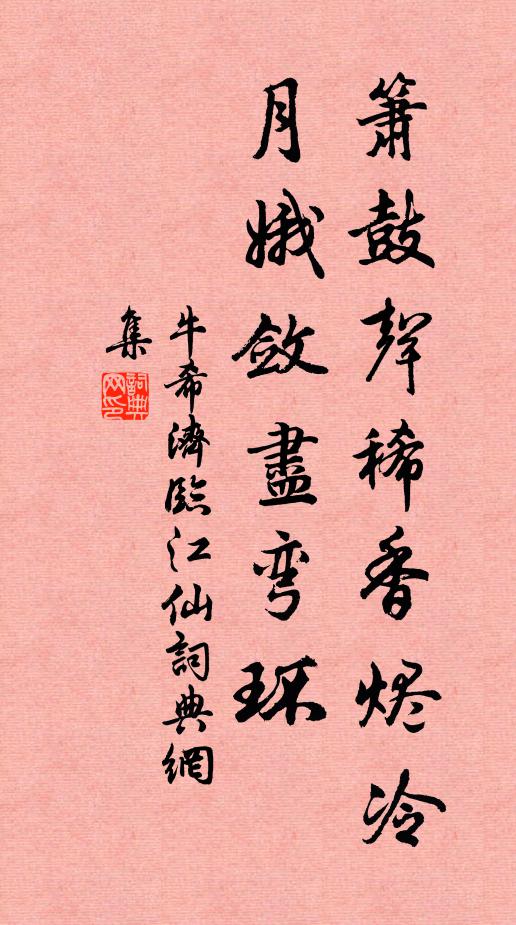 簫鼓聲稀香烬冷
月娥斂盡弯环
牛希濟臨江仙詞典網
集
詞典网印